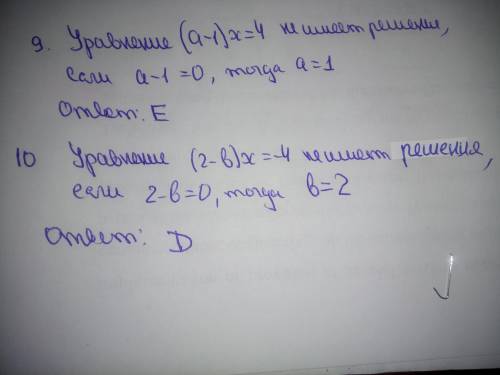 9. Уравнение (а-1)х=4 не имеет решение,
если а-1=0, тогда а=1
Ответ: Е
10 Уравнение (2-в)х=-4 не имеет решения,
если 2-в=0, тогда в=2
Ответ: D